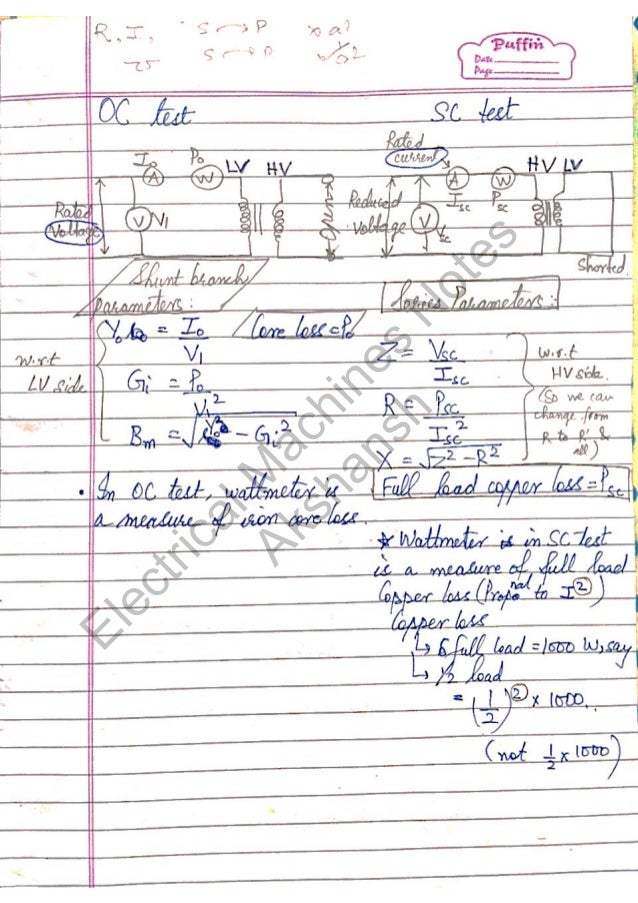 R, I, S → P x a²
25 S → P
Puffin
Date
Page
OC test
SC test
I₀ P₀ LV HV
A W
Rated Voltage
V V₁
Rated current
HV LV
A W
I_sc P_sc
Reduced voltage
V V_sc
Shorted
Shunt branch
parameters:
Series Parameters:
Y₀ = I₀/V₁
Core loss = P₀
w.r.t
LV side
G_i = P₀/V₁²
B_m = √(Y₀² - G_i²)
Z = V_sc/I_sc
R = P_sc/I_sc²
X = √(Z² - R²)
w.r.t
HV side.
(So we can
change from
R to R' &
all)
• In OC test, wattmeter is
a measure of iron core loss.
Full load copper loss = P_sc
* Wattmeter is in SC test
is a measure of full load
Copper loss (Propoⁿᵃˡ to I²)
Copper loss
↳ full load = 1000 W, say
↳ 1/2 load
= (1/2)² x 1000..
(not 1/2 x 1000)
Electrical Machines Notes
Akshansh